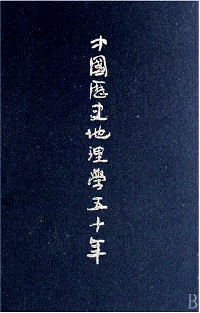 中國歷史地理學五十年
B